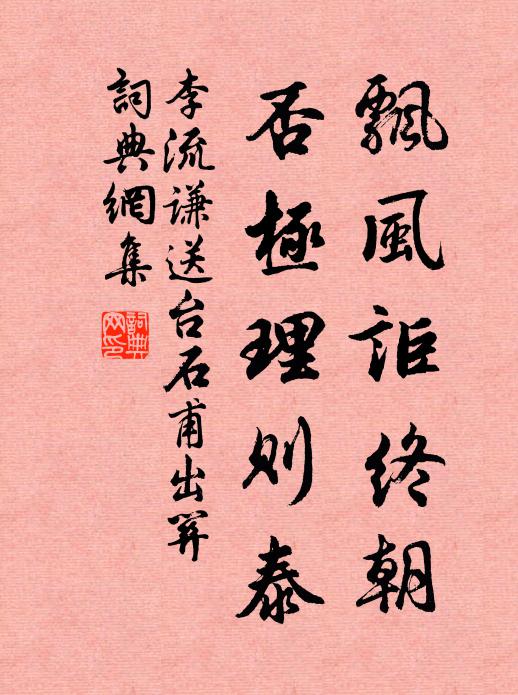 飄風詎終朝
否極理則泰
李流謙送台石甫出關
詞典網集
詞典网印